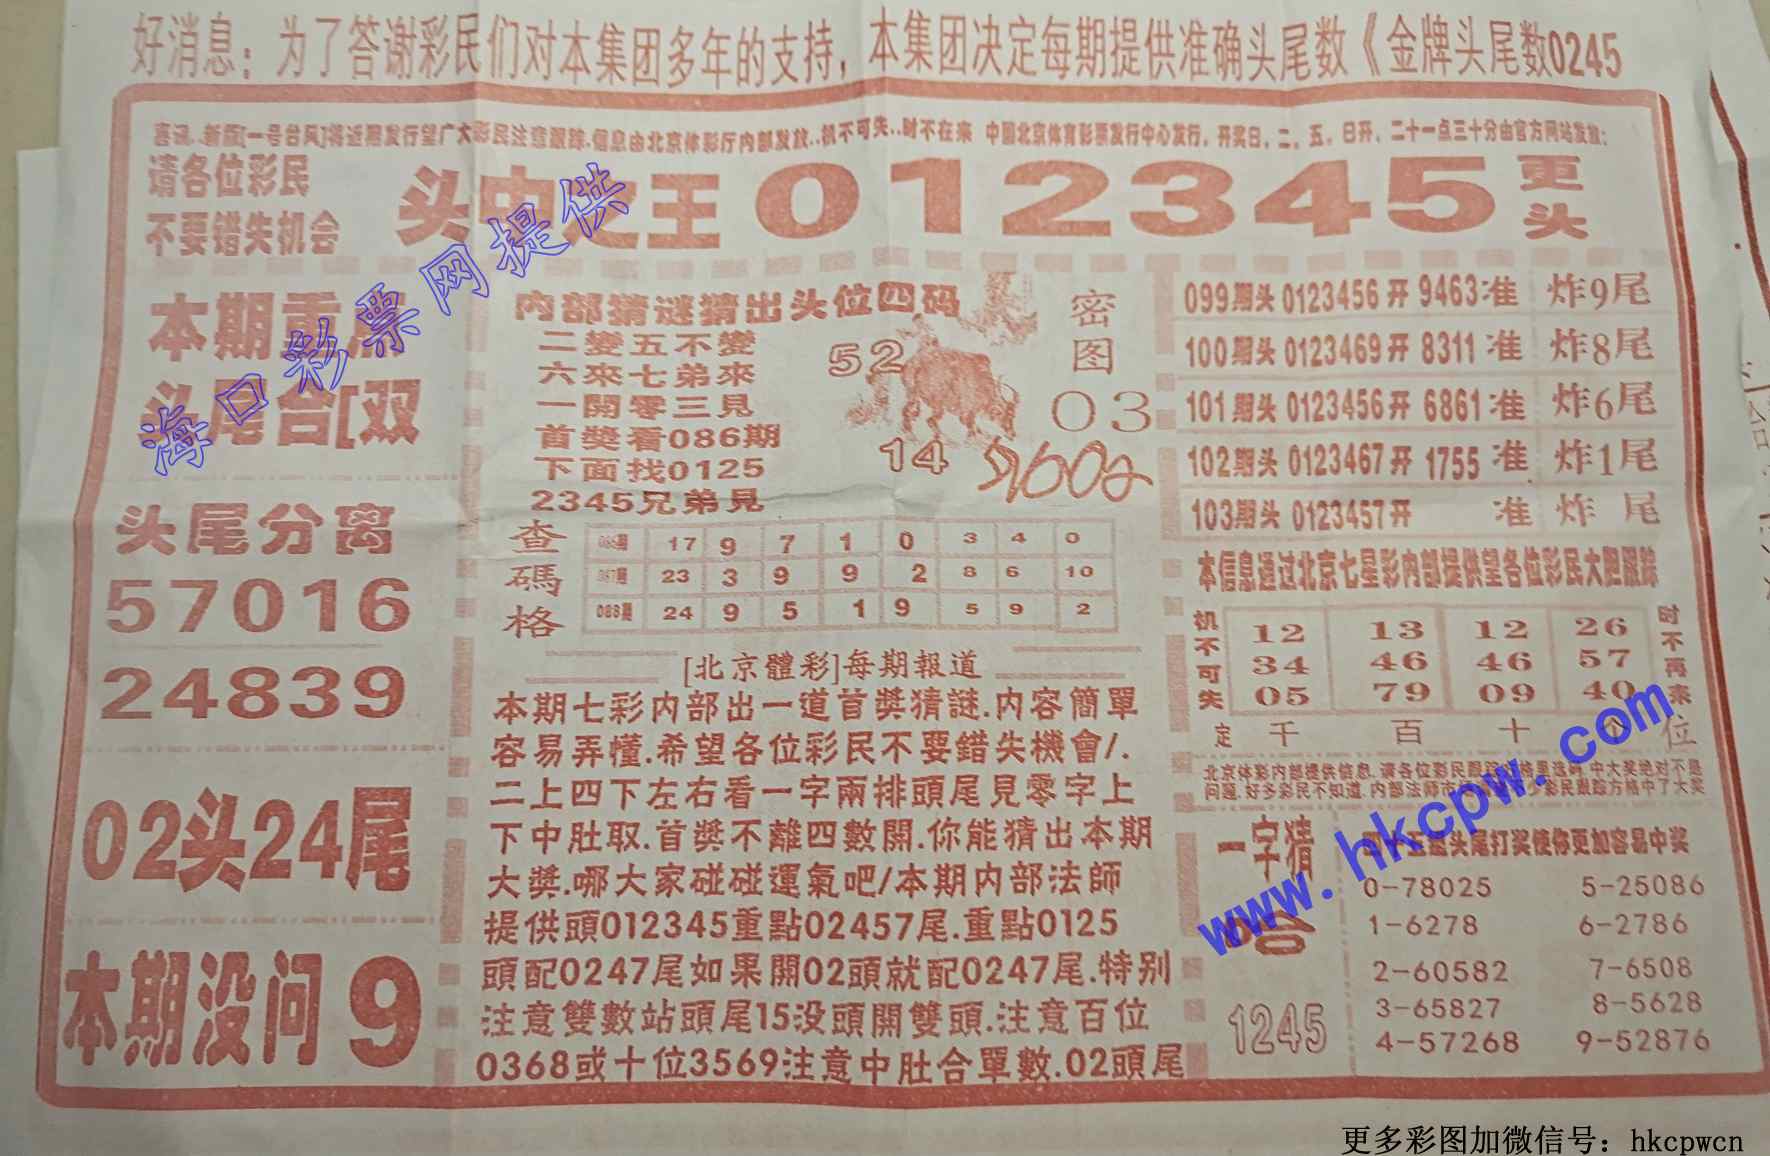 好消息：为了答谢彩民们对本集团多年的支持，本集团决定每期提供准确头尾数《金牌头尾数0245
喜讯..新版[一号台风]将近期发行望广大彩民注意跟踪.信息由北京体彩厅内部发放..机不可失..时不在来 中国北京体育彩票发行中心发行，开奖日，二，五，日开，二十一点三十分由官方网站发放：
请各位彩民
不要错失机会
头中之王012345更头
本期重点
头尾合[双
头尾分离
57016
24839
02头24尾
本期没问9
内部猜谜猜出头位四码
二變五不變
六來七弟來
一開零三見
首獎看086期
下面找0125
2345兄弟見
52
14
密图
03
查碼格
17 9 7 1 0 3 4 0
23 3 9 9 2 8 6 10
088期 24 9 5 1 9 5 9 2
[北京體彩]每期報道
本期七彩内部出一道首獎猜謎.内容簡單
容易弄懂.希望各位彩民不要錯失機會/.
二上四下左右看一字兩排頭尾見零字上
下中肚取.首獎不離四數開.你能猜出本期
大獎.哪大家碰碰運氣吧/本期内部法師
提供頭012345重點02457尾.重點0125
頭配0247尾如果開02頭就配0247尾.特别
注意雙數站頭尾15没頭開雙頭.注意百位
0368或十位3569注意中肚合單數.02頭尾
099期头 0123456 开 9463 准 炸9尾
100期头 0123469 开 8311 准 炸8尾
101期头 0123456 开 6861 准 炸6尾
102期头 0123467 开 1755 准 炸1尾
103期头 0123457 开 准 炸 尾
本信息通过北京七星彩内部提供望各位彩民大胆跟踪
机不可失
12 13 12 26
34 46 46 57
05 79 09 40
时不再来
定 千 百 十 个 位
北京体彩内部提供信息.请各位彩民跟踪
选码.中大奖绝对不是
问题.好多彩民不知道.内部法师
少彩民跟踪方格中了大奖
一字猜
合
1245
头尾打奖使你更加容易中奖
0-78025 5-25086
1-6278 6-2786
2-60582 7-6508
3-65827 8-5628
4-57268 9-52876
海口彩票网提供
www.hkcpw.com
更多彩图加微信号：hkcpwcn